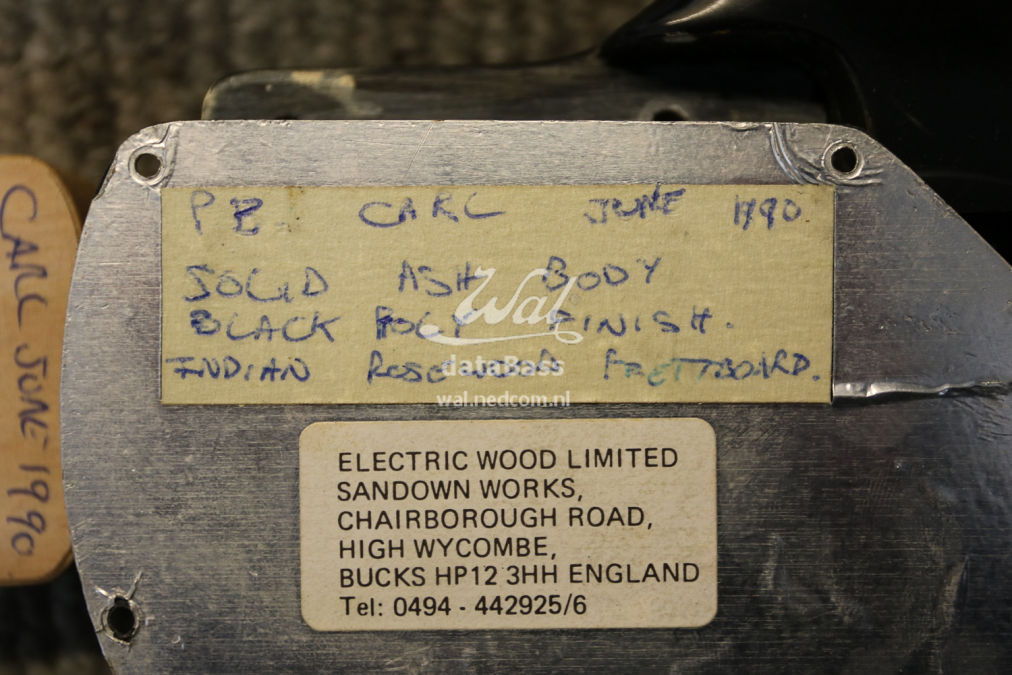 PB CARL JUNE 1990
SOLID ASH BODY
BLACK POLY FINISH.
INDIAN ROSEWOOD FRETTBOARD.
Wal
dataBass
wal.nedcom.nl
ELECTRIC WOOD LIMITED
SANDOWN WORKS,
CHAIRBOROUGH ROAD,
HIGH WYCOMBE,
BUCKS HP12 3HH ENGLAND
Tel: 0494 - 442925/6
CARL JUNE 1990